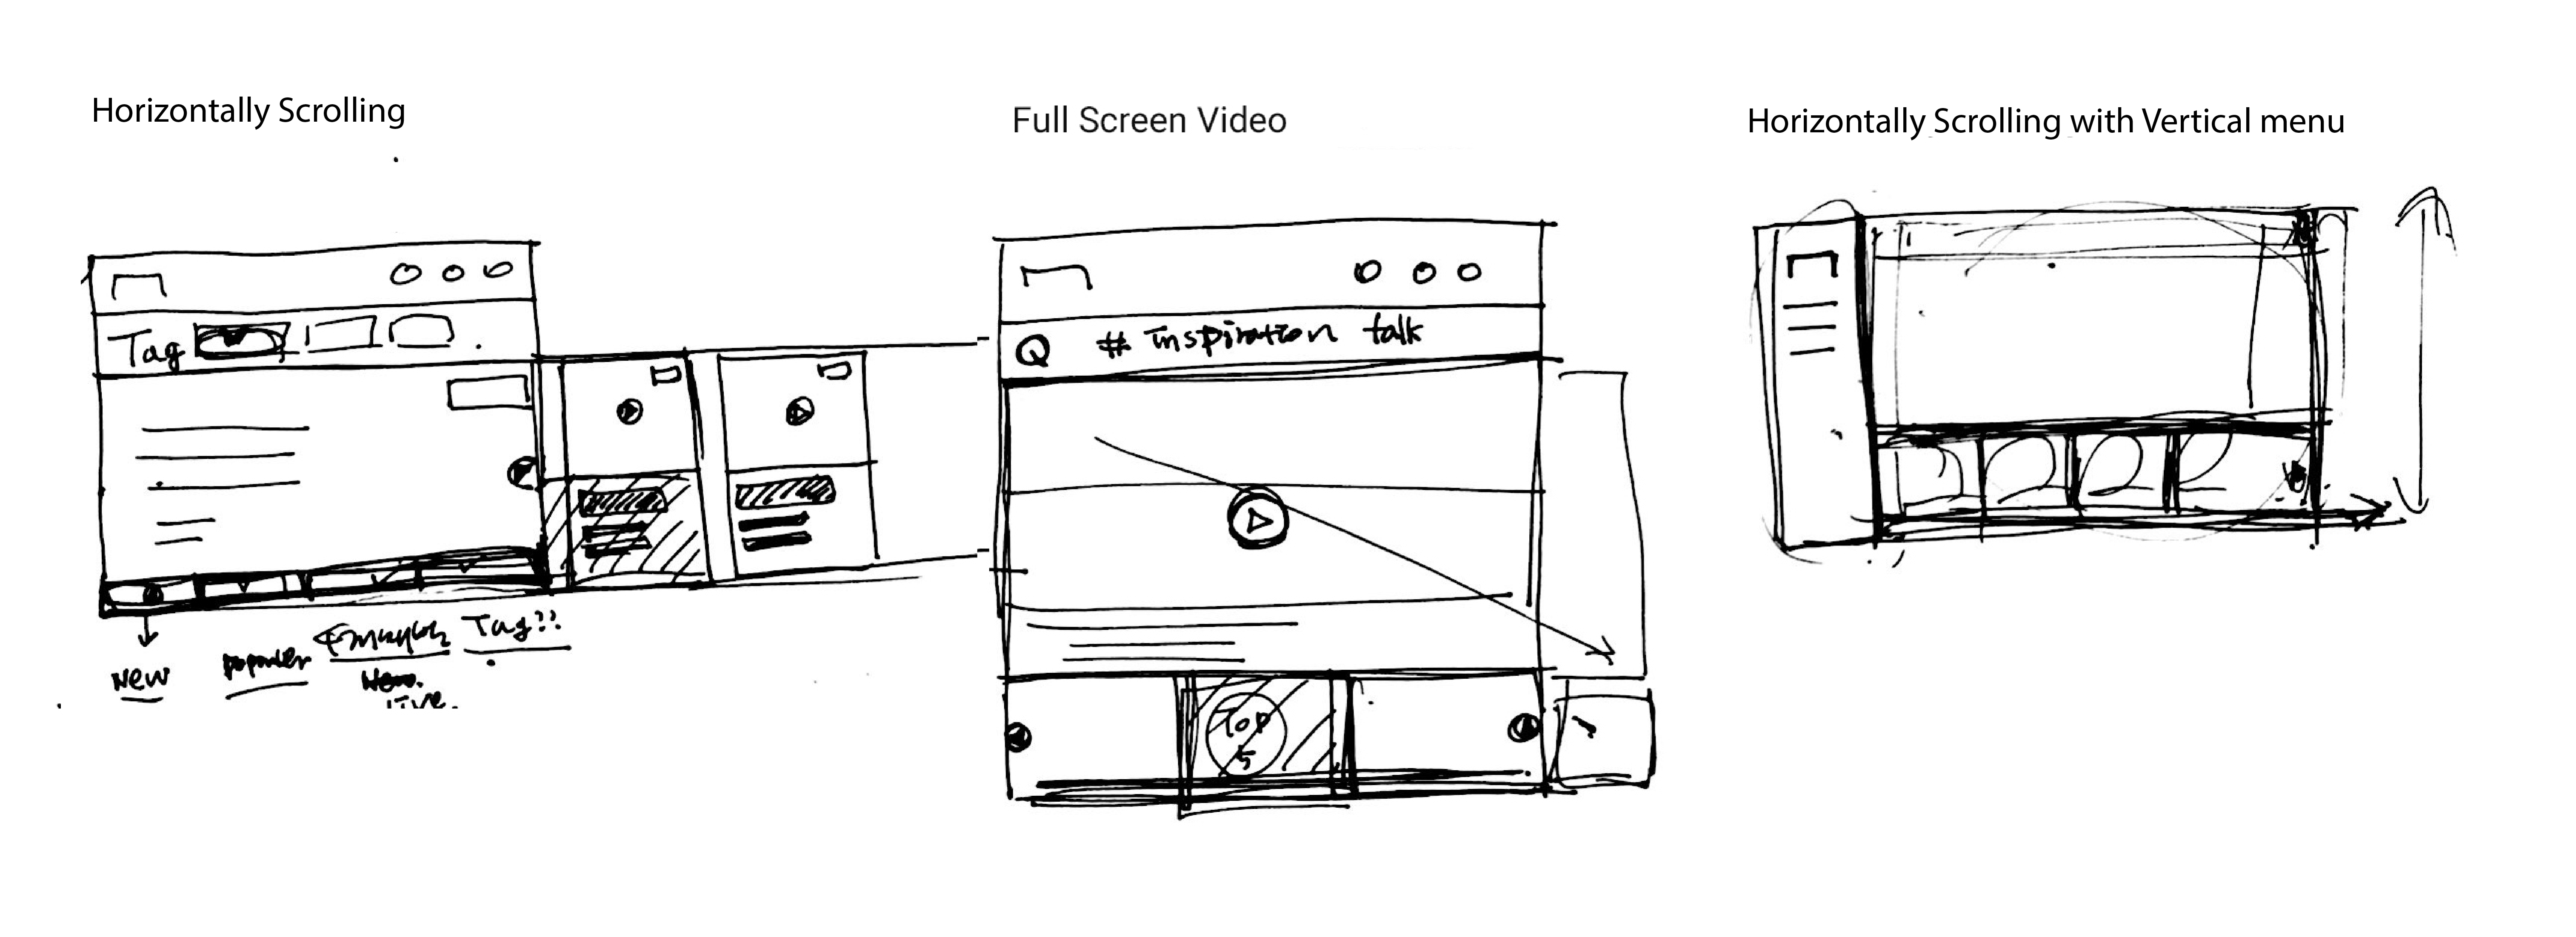 Horizontally Scrolling
Tag
New
popular
Tag??
live.
Full Screen Video
Q # inspiration talk
Top
5
Horizontally Scrolling with Vertical menu